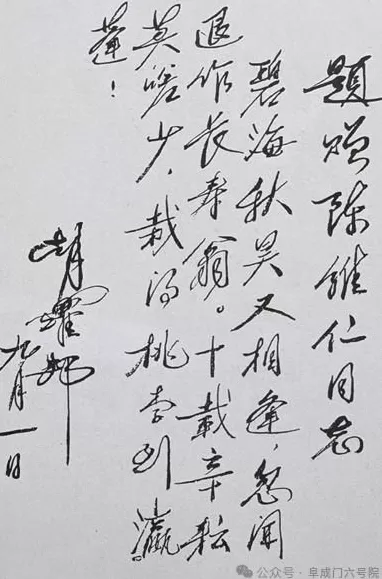 题赠陈维仁同志
碧海秋昊又相逢，忽闻
退作长寿翁。十载辛耘
莫嗟少，栽得桃李到瀛
蓬！
胡耀邦
九月一日
公众号 · 阜成门六号院